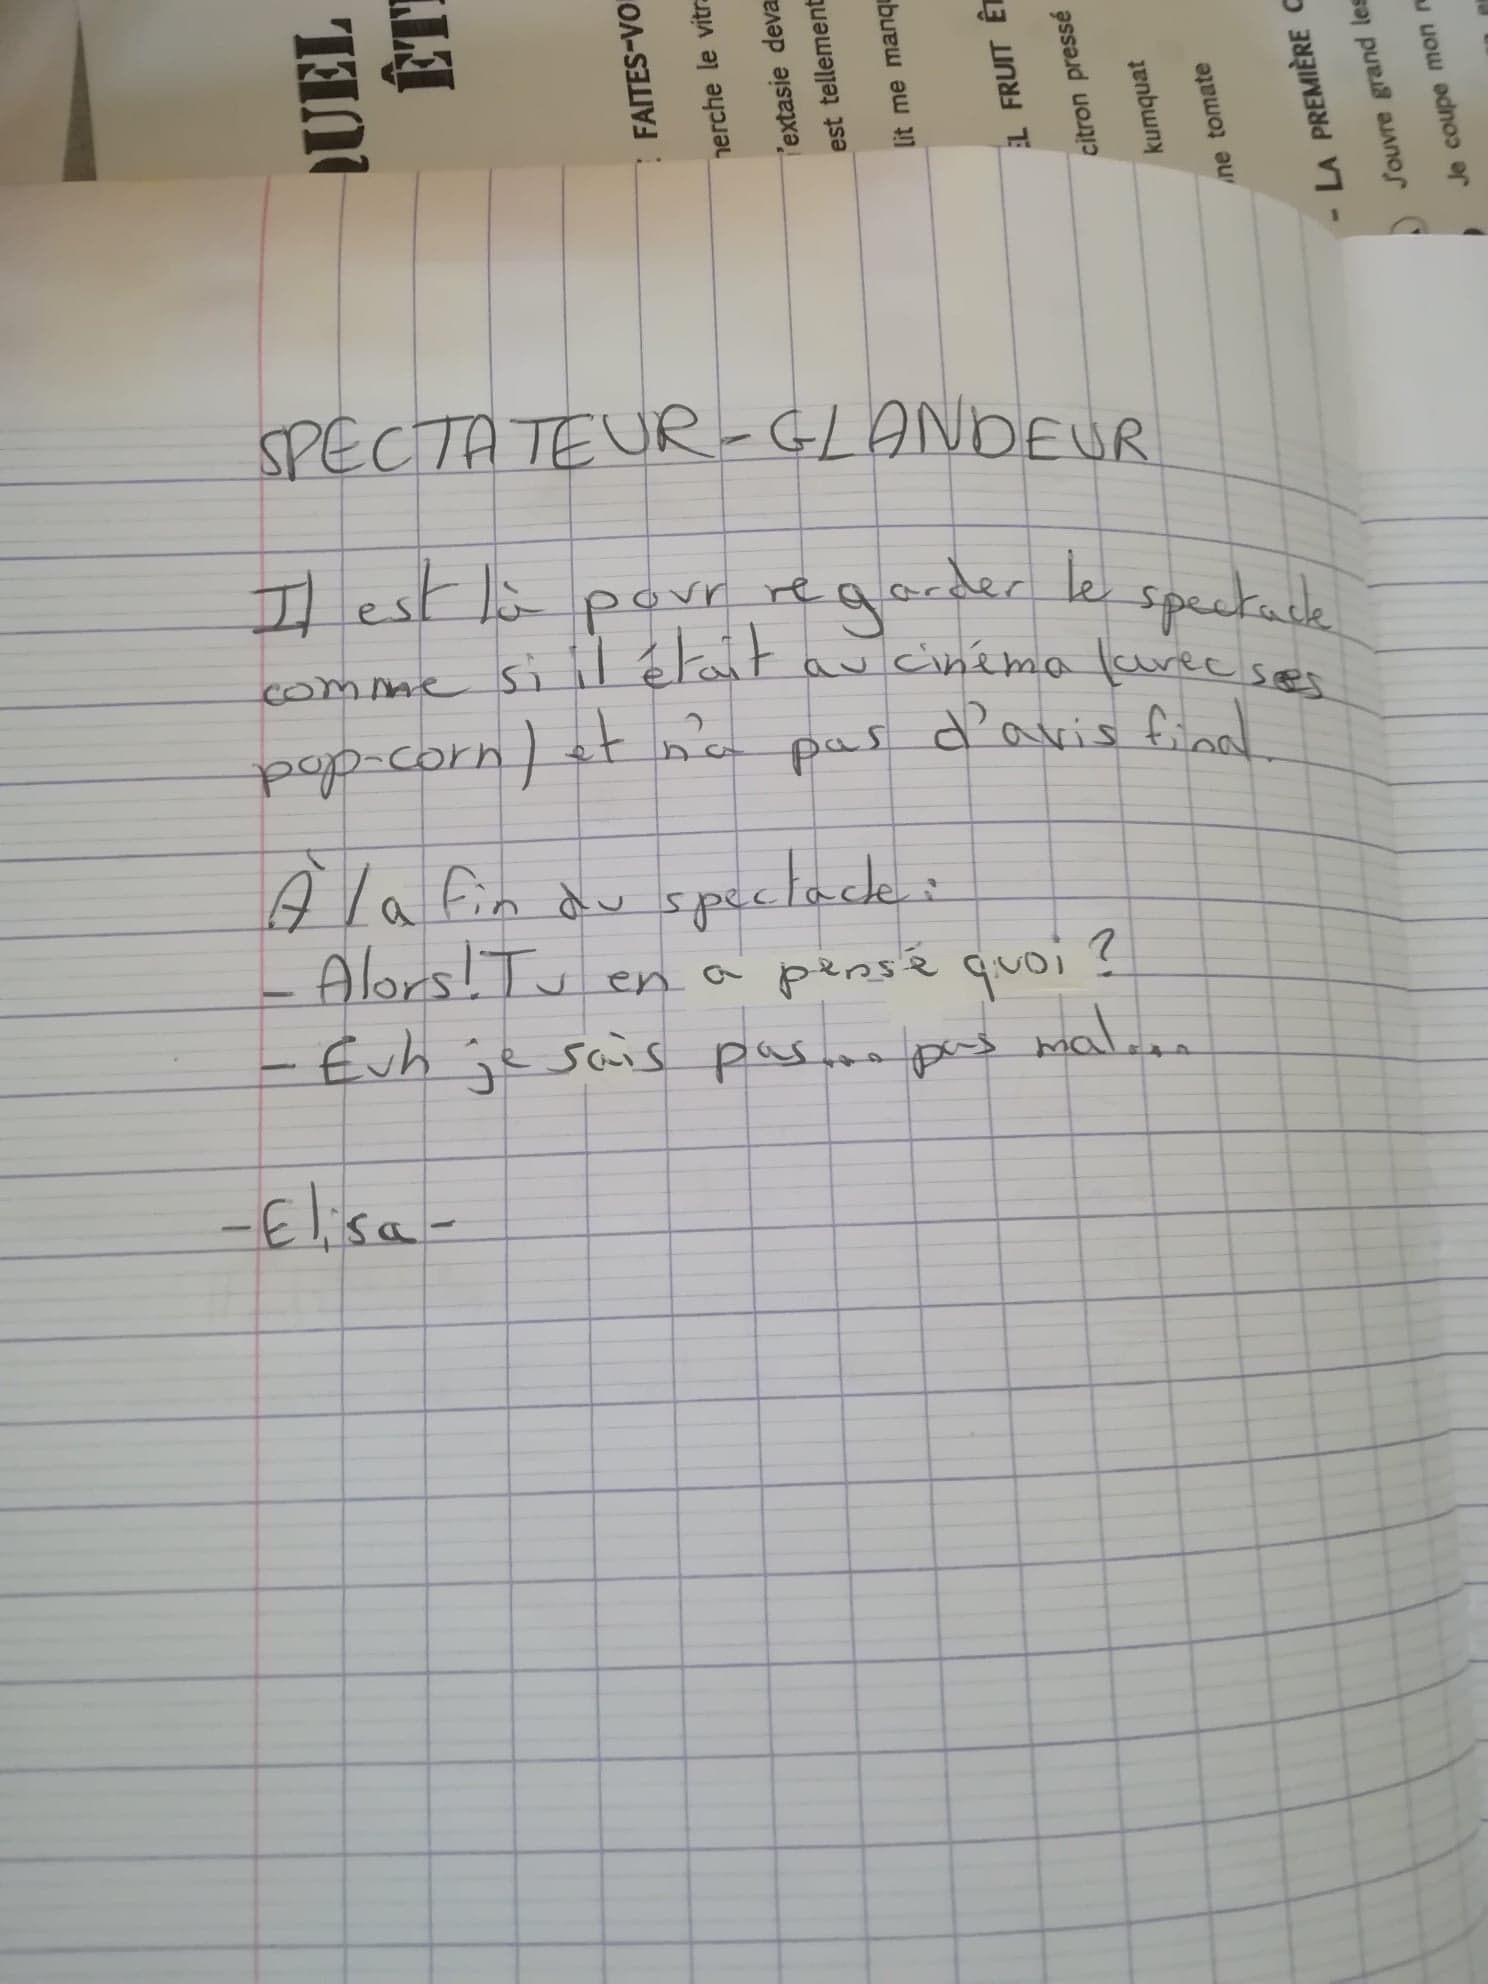 QUEL
ÊT
FAITES-VO
herche le vitr
'extasie deva
est tellement
lit me manq
EL FRUIT ÊT
citron pressé
kumquat
ne tomate
- LA PREMIÈRE
J'ouvre grand les
Je coupe mon
SPECTATEUR-GLANDEUR
Il est là pour regarder le spectacle
comme si il était au cinéma (avec ses
pop-corn) et n'a pas d'avis final.
À la fin du spectacle:
- Alors! Tu en a pensé quoi?
- Euh je sais pas... pas mal...
-Elisa-